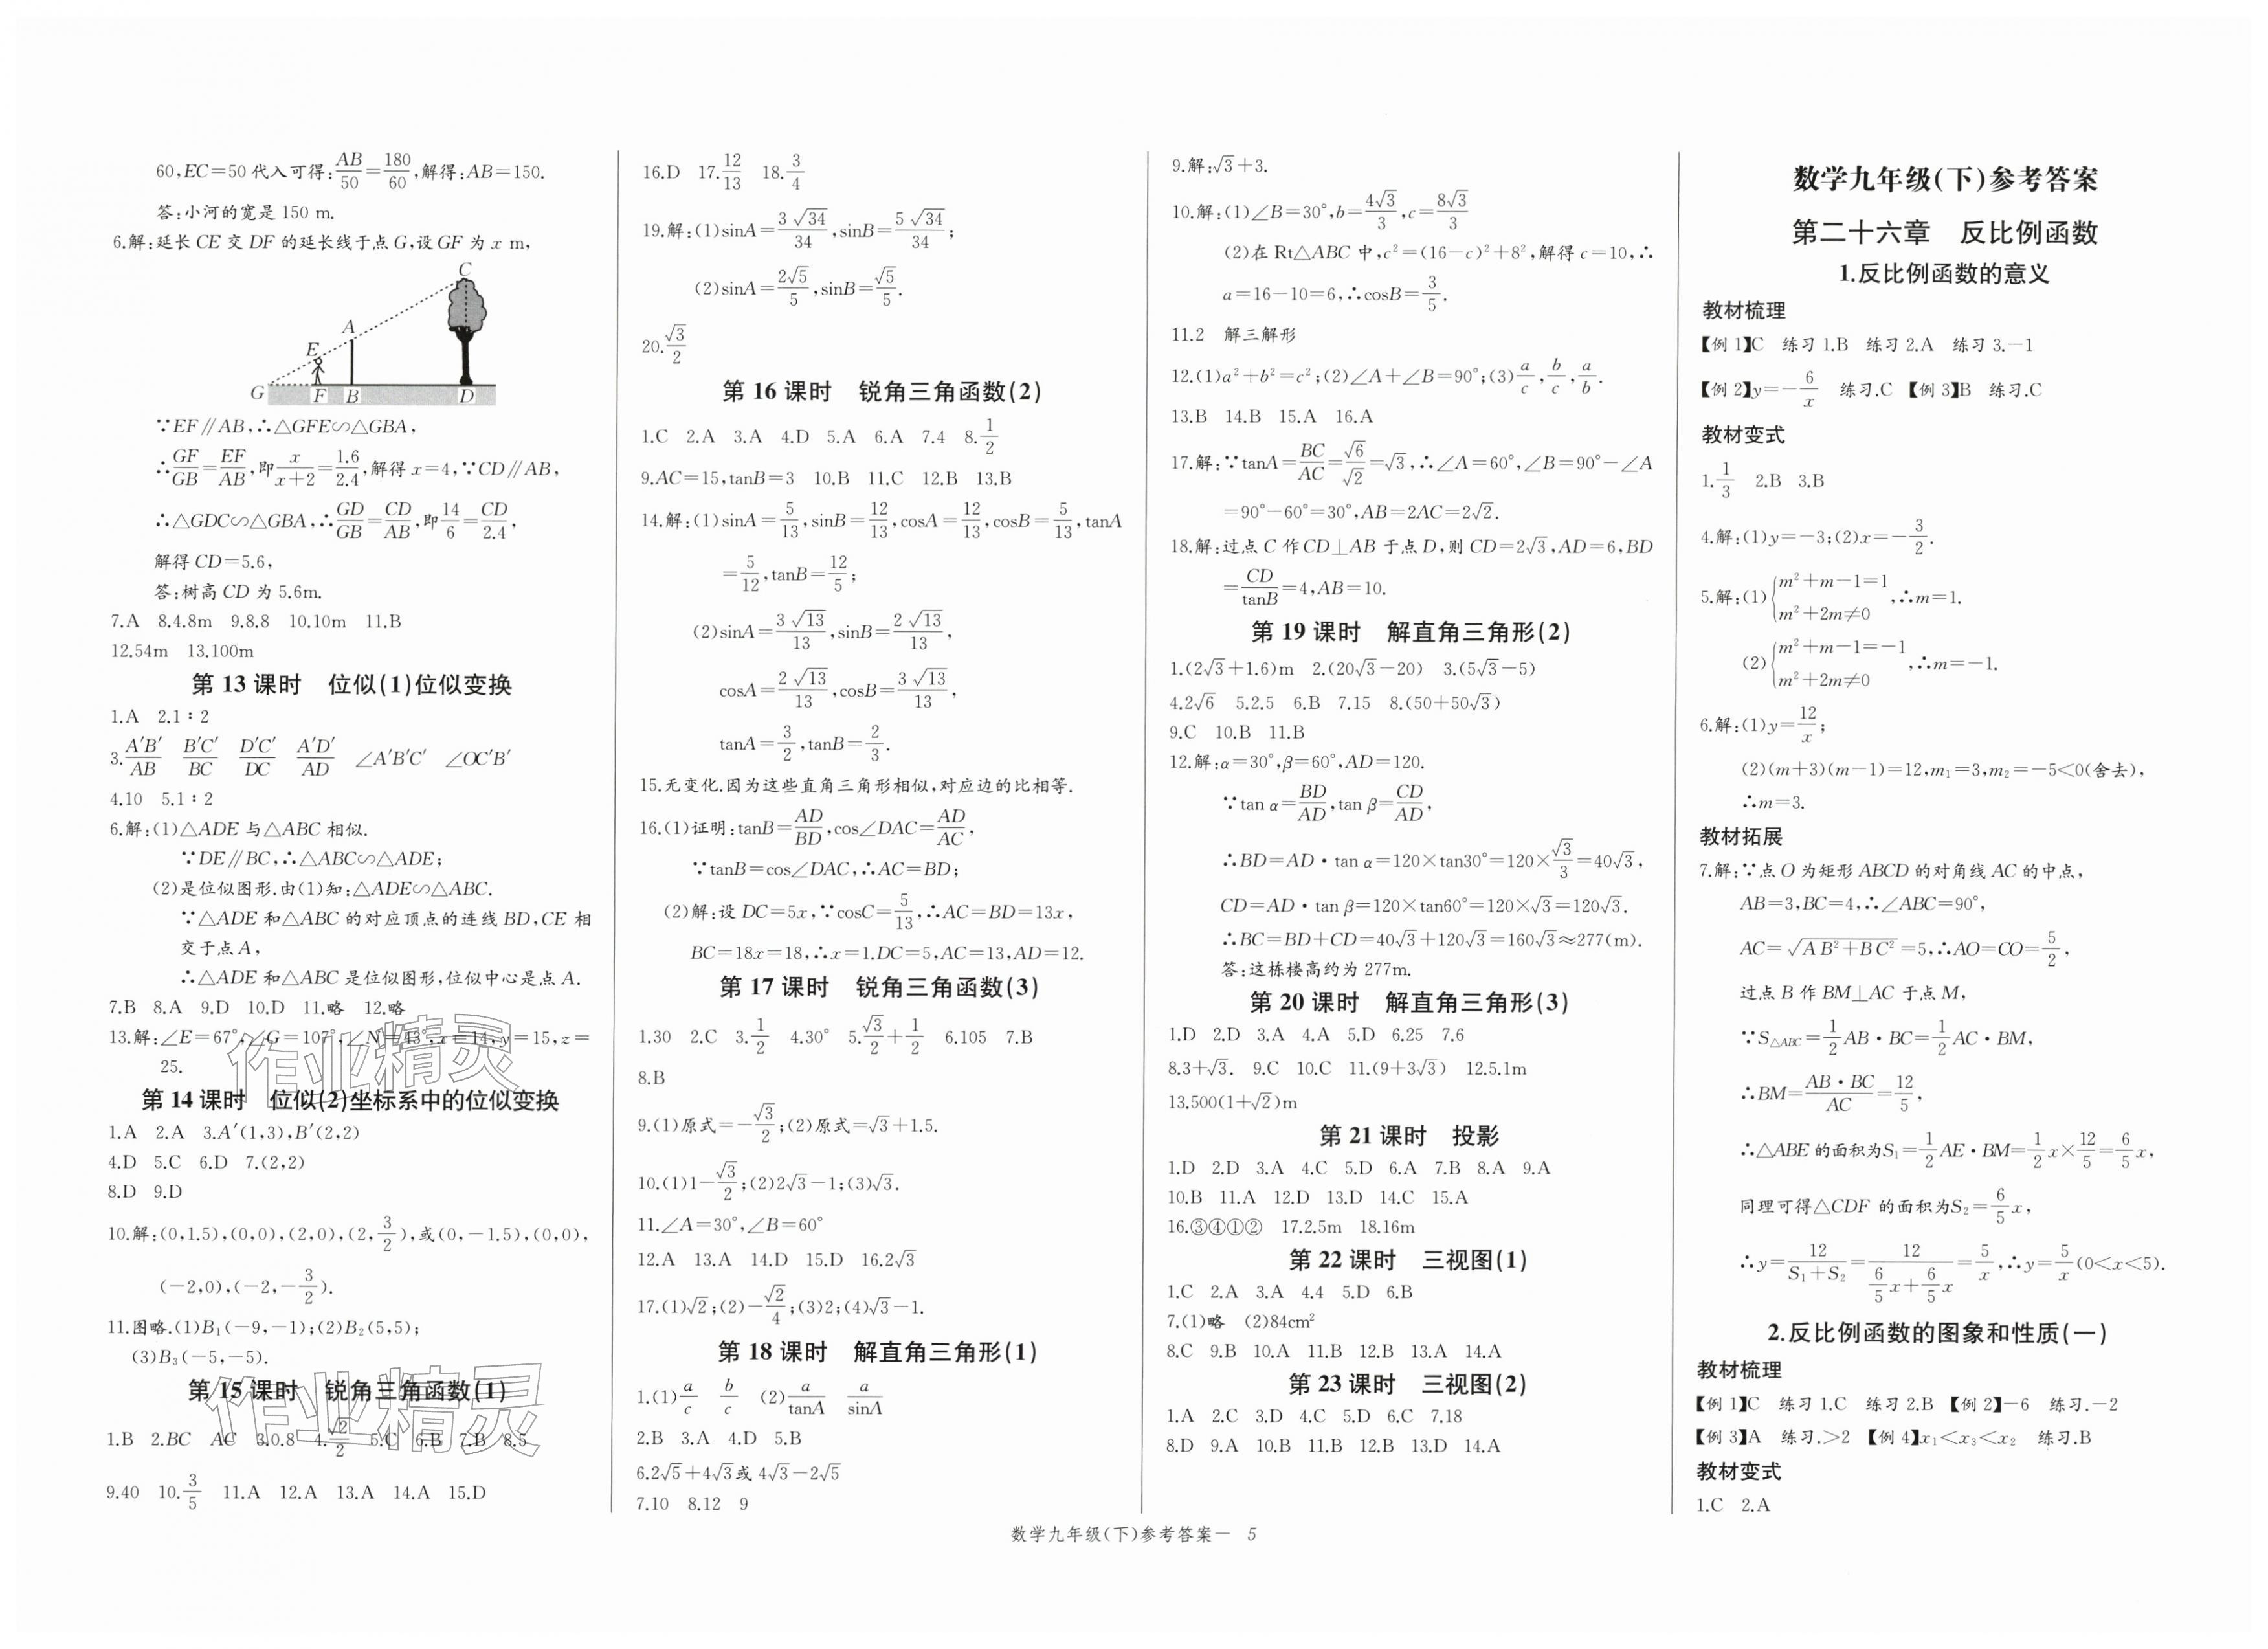 60,EC=50代入可得:AB/50=180/60,解得:AB=150.
答:小河的宽是150 m.
6.解:延长CE交DF的延长线于点G,设GF为x m,
C
A
E
G F B D
∵EF∥AB,∴△GFE∽△GBA,
∴GF/GB=EF/AB,即x/(x+2)=1.6/2.4,解得x=4,∵CD∥AB,
∴△GDC∽△GBA,∴GD/GB=CD/AB,即14/6=CD/2.4,
解得CD=5.6,
答:树高CD为5.6m.
7.A 8.4.8m 9.8.8 10.10m 11.B
12.54m 13.100m
第13课时 位似(1)位似变换
1.A 2.1∶2
3.A′B′/AB B′C′/BC D′C′/DC A′D′/AD ∠A′B′C′ ∠OC′B′
4.10 5.1∶2
6.解:(1)△ADE与△ABC相似.
∵DE∥BC,∴△ABC∽△ADE;
(2)是位似图形.由(1)知:△ADE∽△ABC.
∵△ADE和△ABC的对应顶点的连线BD,CE相
交于点A,
∴△ADE和△ABC是位似图形,位似中心是点A.
7.B 8.A 9.D 10.D 11.略 12.略
13.解:∠E=67°,∠G=107°,∠N=43°,x=14,y=15,z=
25.
作业精灵
第14课时 位似(2)坐标系中的位似变换
1.A 2.A 3.A′(1,3),B′(2,2)
4.D 5.C 6.D 7.(2,2)
8.D 9.D
10.解:(0,1.5),(0,0),(2,0),(2,3/2),或(0,-1.5),(0,0),
(-2,0),(-2,-3/2).
11.图略.(1)B₁(-9,-1);(2)B₂(5,5);
(3)B₃(-5,-5).
第15课时 锐角三角函数(1)
作业精灵
1.B 2.BC AC 3.0.8 4.√2/2 5.C 6.B 7.B 8.5
9.40 10.3/5 11.A 12.A 13.A 14.A 15.D
16.D 17.12/13 18.3/4
19.解:(1)sinA=3√34/34,sinB=5√34/34;
(2)sinA=2√5/5,sinB=√5/5.
20.√3/2
第16课时 锐角三角函数(2)
1.C 2.A 3.A 4.D 5.A 6.A 7.4 8.1/2
9.AC=15,tanB=3 10.B 11.C 12.B 13.B
14.解:(1)sinA=5/13,sinB=12/13,cosA=12/13,cosB=5/13,tanA
=5/12,tanB=12/5;
(2)sinA=3√13/13,sinB=2√13/13,
cosA=2√13/13,cosB=3√13/13,
tanA=3/2,tanB=2/3.
15.无变化.因为这些直角三角形相似,对应边的比相等.
16.(1)证明:tanB=AD/BD,cos∠DAC=AD/AC,
∵tanB=cos∠DAC,∴AC=BD;
(2)解:设DC=5x,∵cosC=5/13,∴AC=BD=13x,
BC=18x=18,∴x=1.DC=5,AC=13,AD=12.
第17课时 锐角三角函数(3)
1.30 2.C 3.1/2 4.30° 5.√3/2+1/2 6.105 7.B
8.B
9.(1)原式=-√3/2;(2)原式=√3+1.5.
10.(1)1-√3/2;(2)2√3-1;(3)√3.
11.∠A=30°,∠B=60°
12.A 13.A 14.D 15.D 16.2√3
17.(1)√2;(2)-√2/4;(3)2;(4)√3-1.
第18课时 解直角三角形(1)
1.(1)a/c b/c (2)a/tanA a/sinA
2.B 3.A 4.D 5.B
6.2√5+4√3或4√3-2√5
7.10 8.12 9
9.解:√3+3.
10.解:(1)∠B=30°,b=4√3/3,c=8√3/3
(2)在Rt△ABC中,c²=(16-c)²+8²,解得c=10,∴
a=16-10=6,∴cosB=3/5.
11.2 解三解形
12.(1)a²+b²=c²;(2)∠A+∠B=90°;(3)a/c,b/c,a/b.
13.B 14.B 15.A 16.A
17.解:∵tanA=BC/AC=√6/√2=√3,∴∠A=60°,∠B=90°-∠A
=90°-60°=30°,AB=2AC=2√2.
18.解:过点C作CD⊥AB于点D,则CD=2√3,AD=6,BD
=CD/tanB=4,AB=10.
第19课时 解直角三角形(2)
1.(2√3+1.6)m 2.(20√3-20) 3.(5√3-5)
4.2√6 5.2.5 6.B 7.15 8.(50+50√3)
9.C 10.B 11.B
12.解:α=30°,β=60°,AD=120.
∵tan α=BD/AD,tan β=CD/AD,
∴BD=AD·tan α=120×tan30°=120×√3/3=40√3,
CD=AD·tan β=120×tan60°=120×√3=120√3.
∴BC=BD+CD=40√3+120√3=160√3≈277(m).
答:这栋楼高约为277m.
第20课时 解直角三角形(3)
1.D 2.D 3.A 4.A 5.D 6.25 7.6
8.3+√3. 9.C 10.C 11.(9+3√3) 12.5.1m
13.500(1+√2)m
第21课时 投影
1.D 2.D 3.A 4.C 5.D 6.A 7.B 8.A 9.A
10.B 11.A 12.D 13.D 14.C 15.A
16.③④①② 17.2.5m 18.16m
第22课时 三视图(1)
1.C 2.A 3.A 4.4 5.D 6.B
7.(1)略 (2)84cm²
8.C 9.B 10.A 11.B 12.B 13.A 14.A
第23课时 三视图(2)
1.A 2.C 3.D 4.C 5.D 6.C 7.18
8.D 9.A 10.B 11.B 12.B 13.D 14.A
数学九年级(下)参考答案
第二十六章 反比例函数
1.反比例函数的意义
教材梳理
【例1】C 练习1.B 练习2.A 练习3.-1
【例2】y=-6/x 练习.C 【例3】B 练习.C
教材变式
1.1/3 2.B 3.B
4.解:(1)y=-3;(2)x=-3/2.
5.解:(1){m²+m-1=1
m²+2m≠0,∴m=1.
(2){m²+m-1=-1
m²+2m≠0,∴m=-1.
6.解:(1)y=12/x;
(2)(m+3)(m-1)=12,m₁=3,m₂=-5<0(舍去),
∴m=3.
教材拓展
7.解:∵点O为矩形ABCD的对角线AC的中点,
AB=3,BC=4,∴∠ABC=90°,
AC=√(AB²+BC²)=5,∴AO=CO=5/2,
过点B作BM⊥AC于点M,
∵S△ABC=1/2AB·BC=1/2AC·BM,
∴BM=AB·BC/AC=12/5,
∴△ABE的面积为S₁=1/2AE·BM=1/2x×12/5=6/5x,
同理可得△CDF的面积为S₂=6/5x,
∴y=12/(S₁+S₂)=12/(6/5x+6/5x)=5/x,∴y=5/x(0<x<5).
2.反比例函数的图象和性质(一)
教材梳理
【例1】C 练习1.C 练习2.B 【例2】-6 练习.-2
【例3】A 练习.>2 【例4】x₁<x₃<x₂ 练习.B
教材变式
1.C 2.A
数学九年级(下)参考答案— 5